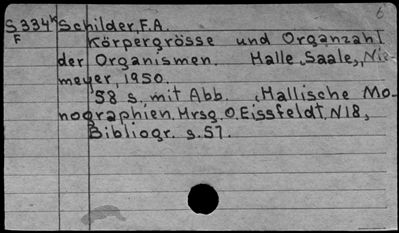 6
S334k Schilder, F.A.
F Körpergrösse und Organzahl
der Organismen. Halle, Saale, Nie-
meyer, 1950.
58 s. mit Abb. (Hallische Mo-
nographien. Hrsg. O. Eissfeldt. N18,
Bibliogr. s. 57.